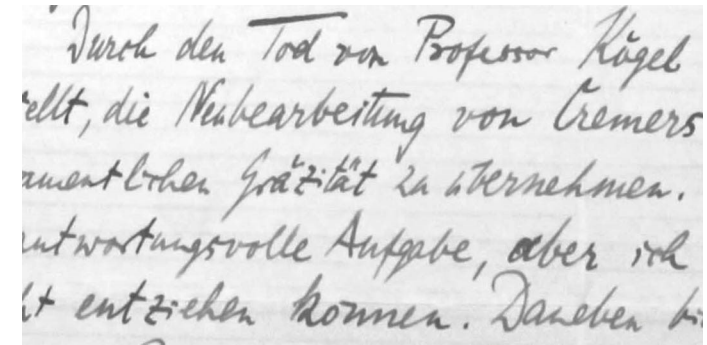 Durch den Tod von Professor Kögel
ellt, die Neubearbeitung von Cremers
amentlichen Gräzität zu übernehmen.
antwortungsvolle Aufgabe, aber ich
ht entziehen können. Daneben bi